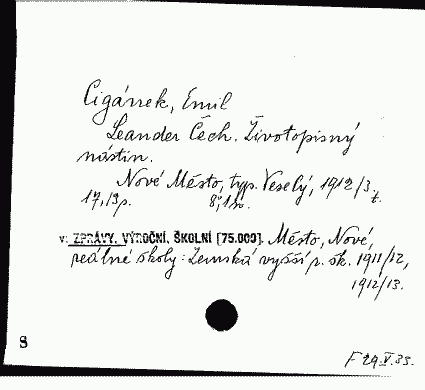 Cigánek, Emil
Leander Čech. Životopisný
nástin.
Nové Město, typ. Veselý, 1912/3.
17,19 p. 8°,
v: ZPRÁVY, VÝROČNÍ, ŠKOLNÍ [75.009]. Město, Nové,
reálné školy: Zemská vyšší r. šk. 1911/12,
1912/13.
S
F 29.V.33.